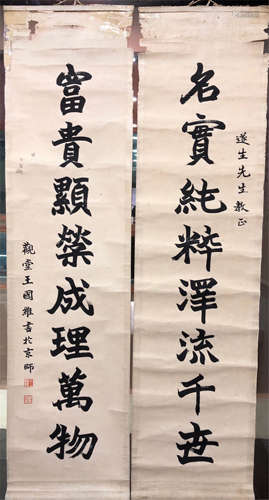 名實純粹澤流千世
遂生先生教正
富貴顯榮成理萬物
觀堂王國維書於京師